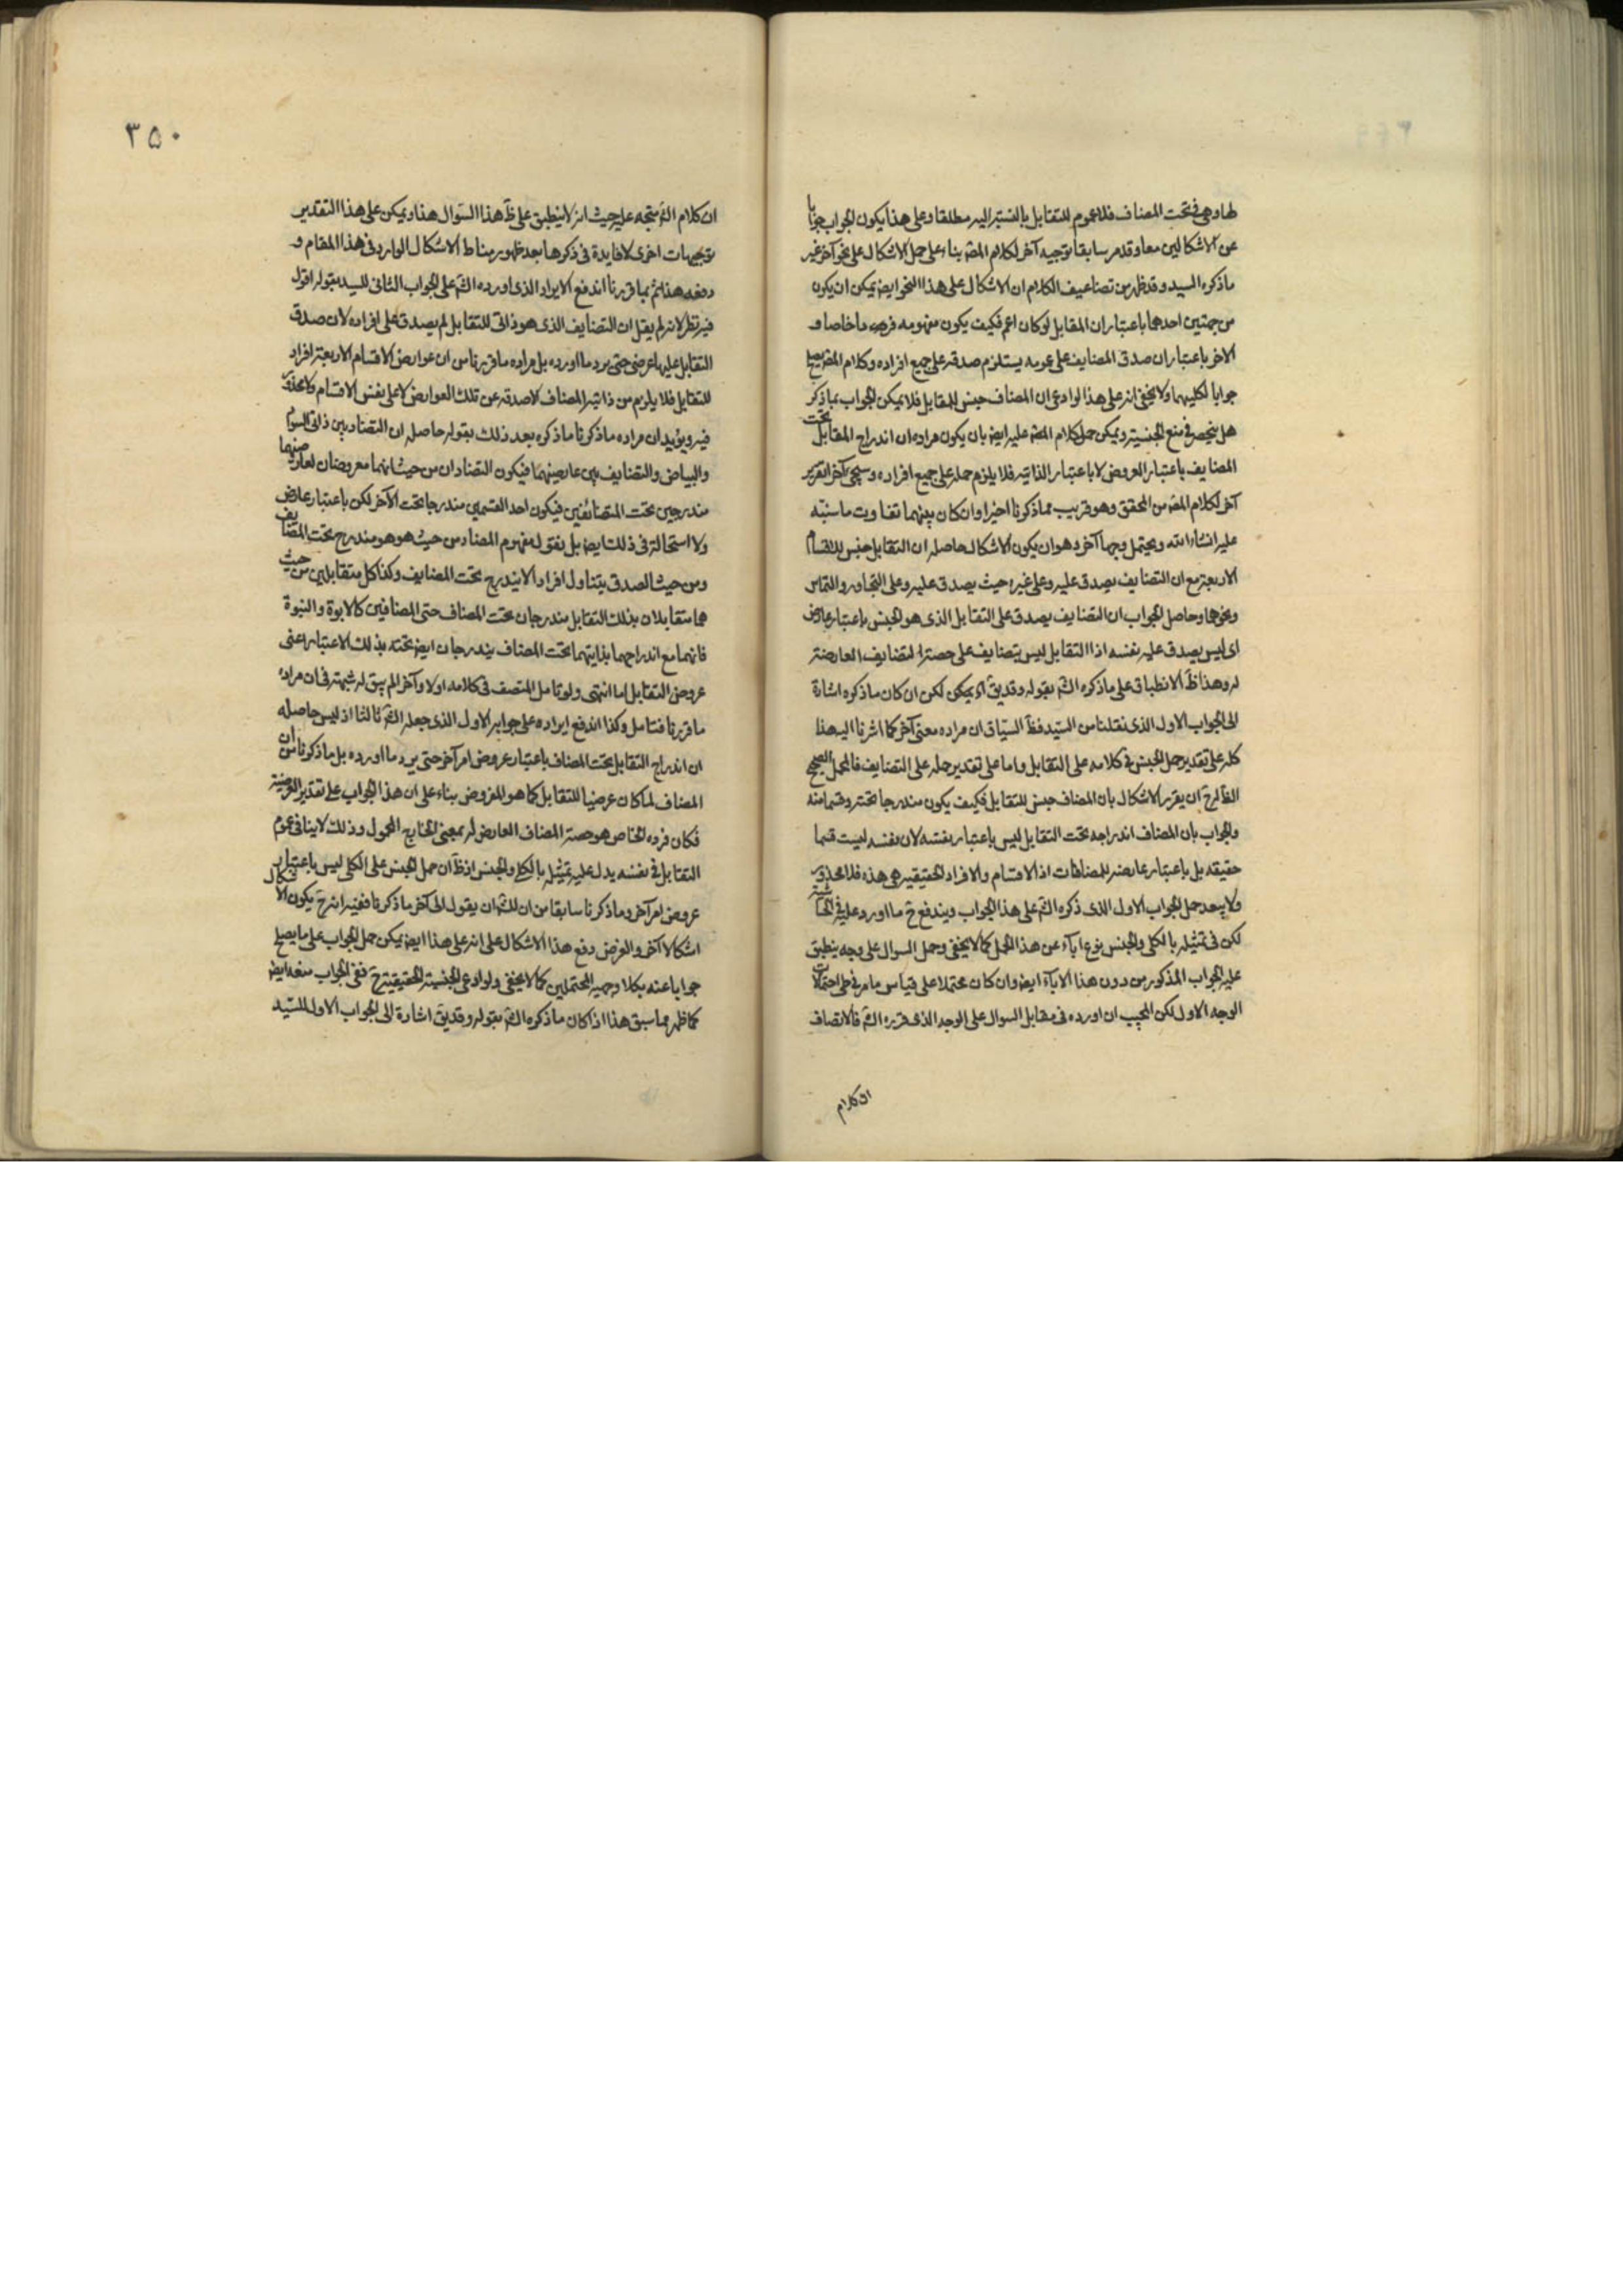 لها وهي تحت المضاف فلا عموم للتقابل بالنسبة اليه مطلقا وعلى هذا يكون الجواب جوابا
عن الاشكالين معا وقد مر سابقا توجيه آخر لكلام المصّ بناء على حمل الاشكال على نحو آخر غير
ما ذكره السيد وقد ظهر من تضاعيف الكلام ان الاشكال على هذا النحو ايضا يمكن ان يكون
من جهتين احدهما باعتبار ان المقابل لو كان اعم فكيف يكون مفهومه فردا خاصا و
الاخر باعتبار ان صدق المضايف على عمومه يستلزم صدقه على جميع افراده وكلام المصّ يصلح
جوابا لكليهما ولا يخفى انه على هذا لو ادعى ان المضاف جنس للمقابل فلا يمكن الجواب بما ذكر
هل ينحصر في منع الجنسية ويمكن حمل كلام المصّ عليه ايضا بان يكون مراده ان اندراج المقابل تحت
المضايف باعتبار العروض لا باعتبار الذاتية فلا يلزم حمله على جميع افراده وسيجئ آخر تقرير
آخر لكلام المصّ من المحقق وهو قريب مما ذكرنا اخيرا وان كان بينهما تفاوت ما سننبّه
عليه انشاء الله ويحتمل وجها آخر وهو ان يكون الاشكال حاصله ان التقابل جنس للاقسام
الاربعة مع ان التضايف يصدق عليه وعلى غيره حيث يصدق عليه وعلى التجاور والتماس
ونحوها وحاصل الجواب ان التضايف يصدق على التقابل الذي هو الجنس باعتبار عارض
اي ليس يصدق عليه نفسه اذ التقابل ليس بتضايف على حصته التضايف العارضة
له وهذا ظ الانطباق على ما ذكره الشّ بقوله وقد يقّ اه يمكن لكن ان كان ما ذكره اشارة
الى الجواب الاول الذي نقلنا من السيد فظ السياق ان مراده معنى آخر كما اشرنا اليه هذا
كله على تقدير حمل الجنس في كلامه على التقابل واما على تقدير حمله على التضايف فالمحمل الصحيح
الظ له ح ان يقرر الاشكال بان المضاف جنس للتقابل فكيف يكون مندرجا تحته وقسما منه
والجواب بان المضاف اندراجه تحت التقابل ليس باعتبار نفسه لان نفسه ليست قسما
حقيقه بل باعتبار عارضه للمضافات اذ الاقسام والافراد الحقيقيه هي هذه فلا محذور
ولا يبعد حمل الجواب الاول الذي ذكره الشّ على هذا الجواب ويندفع ح ما اورد عليه في الحاشية
لكن في تمثيله بالكلى والجنس نوع اباء عن هذا الحمل كما لا يخفى وحمل السوال على وجه ينطبق
عليه الجواب المذكور من دون هذا الاباء ايضا وان كان محتملا على قياس ما مر في طى احتمالات
الوجه الاول لكن المجيب ان اورده في مقابل السوال على الوجه الذي قرره الشّ فالانصاف
ان كلام
٣٥٠
ان كلام الشّ متجه عليه حيث انه لا ينطبق على ظ هذا السؤال هذا ويمكن على هذا التقدير
توجيهات اخرى لا فايدة في ذكرها بعد ظهور مناط الاشكال الوارد في هذا المقام و
دفعه هذا ثم بما قررنا اندفع الايراد الذي اورده الشّ على الجواب الثاني للسيد بقوله اقول
فيه نظر لانه لم يقل ان التضايف الذي هو ذاتي للتقابل لم يصدق على افراده لان صدق
التقابل عليها عرضي حتى يرد ما اورده بل مراده ما قررنا من ان عوارض الاقسام الاربعة افراد
للتقابل فلا يلزم من ذاتية المضاف الا صدقه عن تلك العوارض لا على نفس الاقسام ولا محذور
فيه ويؤيد ان مراده ما ذكرنا ما ذكره بعد ذلك بقوله حاصله ان التضاد بين ذاتي السواد
والبياض والتضايف بين عارضيهما فيكون التضادان من حيث انهما معروضان لعارضيهما
مندرجين تحت المتضايفين فيكون احد القسمين مندرجا تحت الآخر لكن باعتبار عارض
ولا استحالة في ذلك ايضا بل نقول مفهوم المضاد من حيث هو هو مندرج تحت المضايف
ومن حيث الصدق يتناول افرادا لا يندرج تحت المضايف وكذا كل متقابلين من حيث
هما متقابلان بذلك التقابل مندرجان تحت المضاف حتى المضافين كالابوة والبنوة
فانهما مع اندراجهما بذاتيهما تحت المضاف يندرجان ايضا تحته بذلك الاعتبار اعنى
عروض التقابل لهما انتهى ولو تامل المتصف في كلامه اولا وآخرا لم يبق له شبهة في ان مراده
ما قررنا فتامل وكذا اندفع ايراده على جوابه الاول الذي جعله الشّ ثالثا اذ ليس حاصله
ان اندراج التقابل تحت المضاف باعتبار عروض امر آخر حتى يرد ما اورده بل ما ذكرنا من ان
المضاف لما كان عرضيا للتقابل كما هو المفروض بناء على ان هذا الجواب على تقدير العرضية
فكان فرده الخاص هو حصة المضاف العارض له بمعنى الخارج المحمول وذلك لا ينافى عموم
التقابل في نفسه يدل عليه تمثيله بالكلى والجنس اذ ظ ان حمل الجنس على الكلى ليس باعتبار
عروض امر آخر وما ذكرنا سابقا من ان للشّ ان يقول الى آخر ما ذكرنا ففيه انه ح يكون الاشكال
اشكالا آخر والغرض دفع هذا الاشكال على انه على هذا ايضا يمكن حمل الجواب على ما يصلح
جوابا عنه بكلا وجهيه المحتملين كما لا يخفى ولو ادعى الجنسية الحقيقية ح ففى الجواب منعه ايضا
كما ظهر مما سبق هذا اذا كان ما ذكره الشّ بقوله وقد يقّ اشارة الى الجواب الاول للسيد